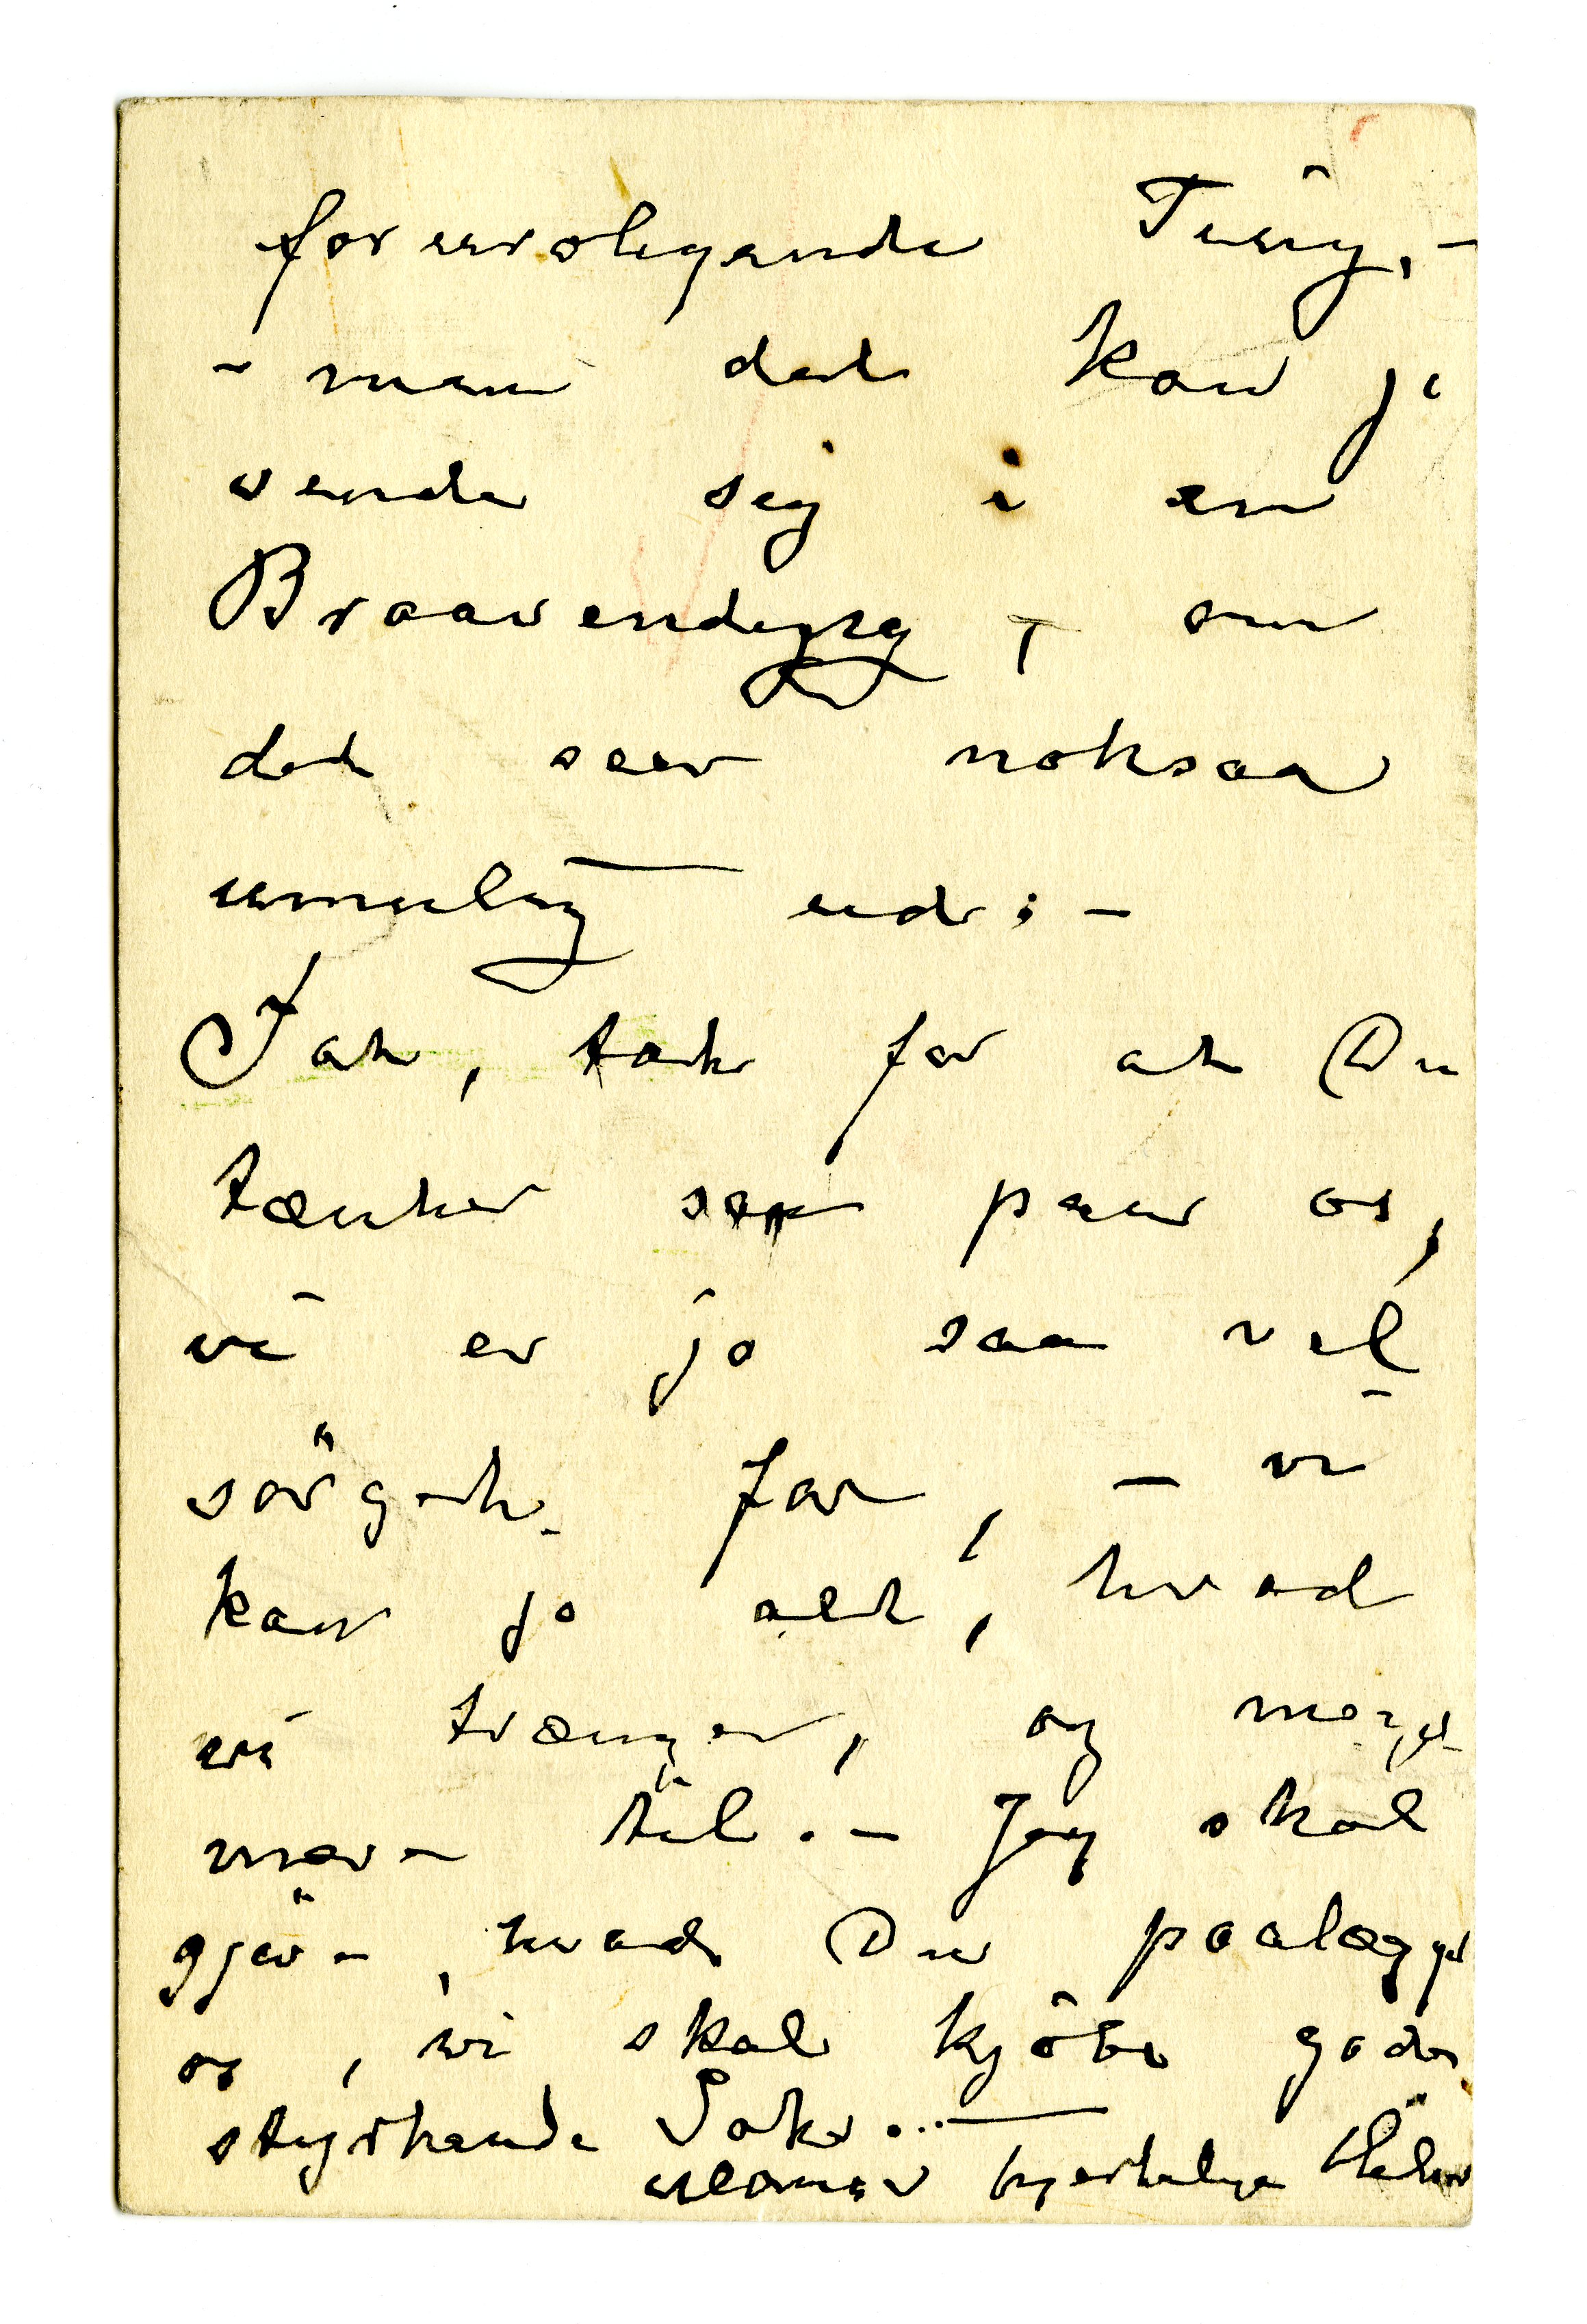 foruroligende Ting, -
- men det kan jo
vende sig i en
Braavending, om
det ser noksaa
umulig ud; -
Jah, tak for at Du
tænker paa os,
vi er jo saa vel
sörget for, - vi
kan jo alt, hvad
vi trænger, og meget
mere til. - Jeg skal
gjöre, hvad Du paalægger
os, vi skal kjöbe gode
styrkende Saker... —
hjertelige